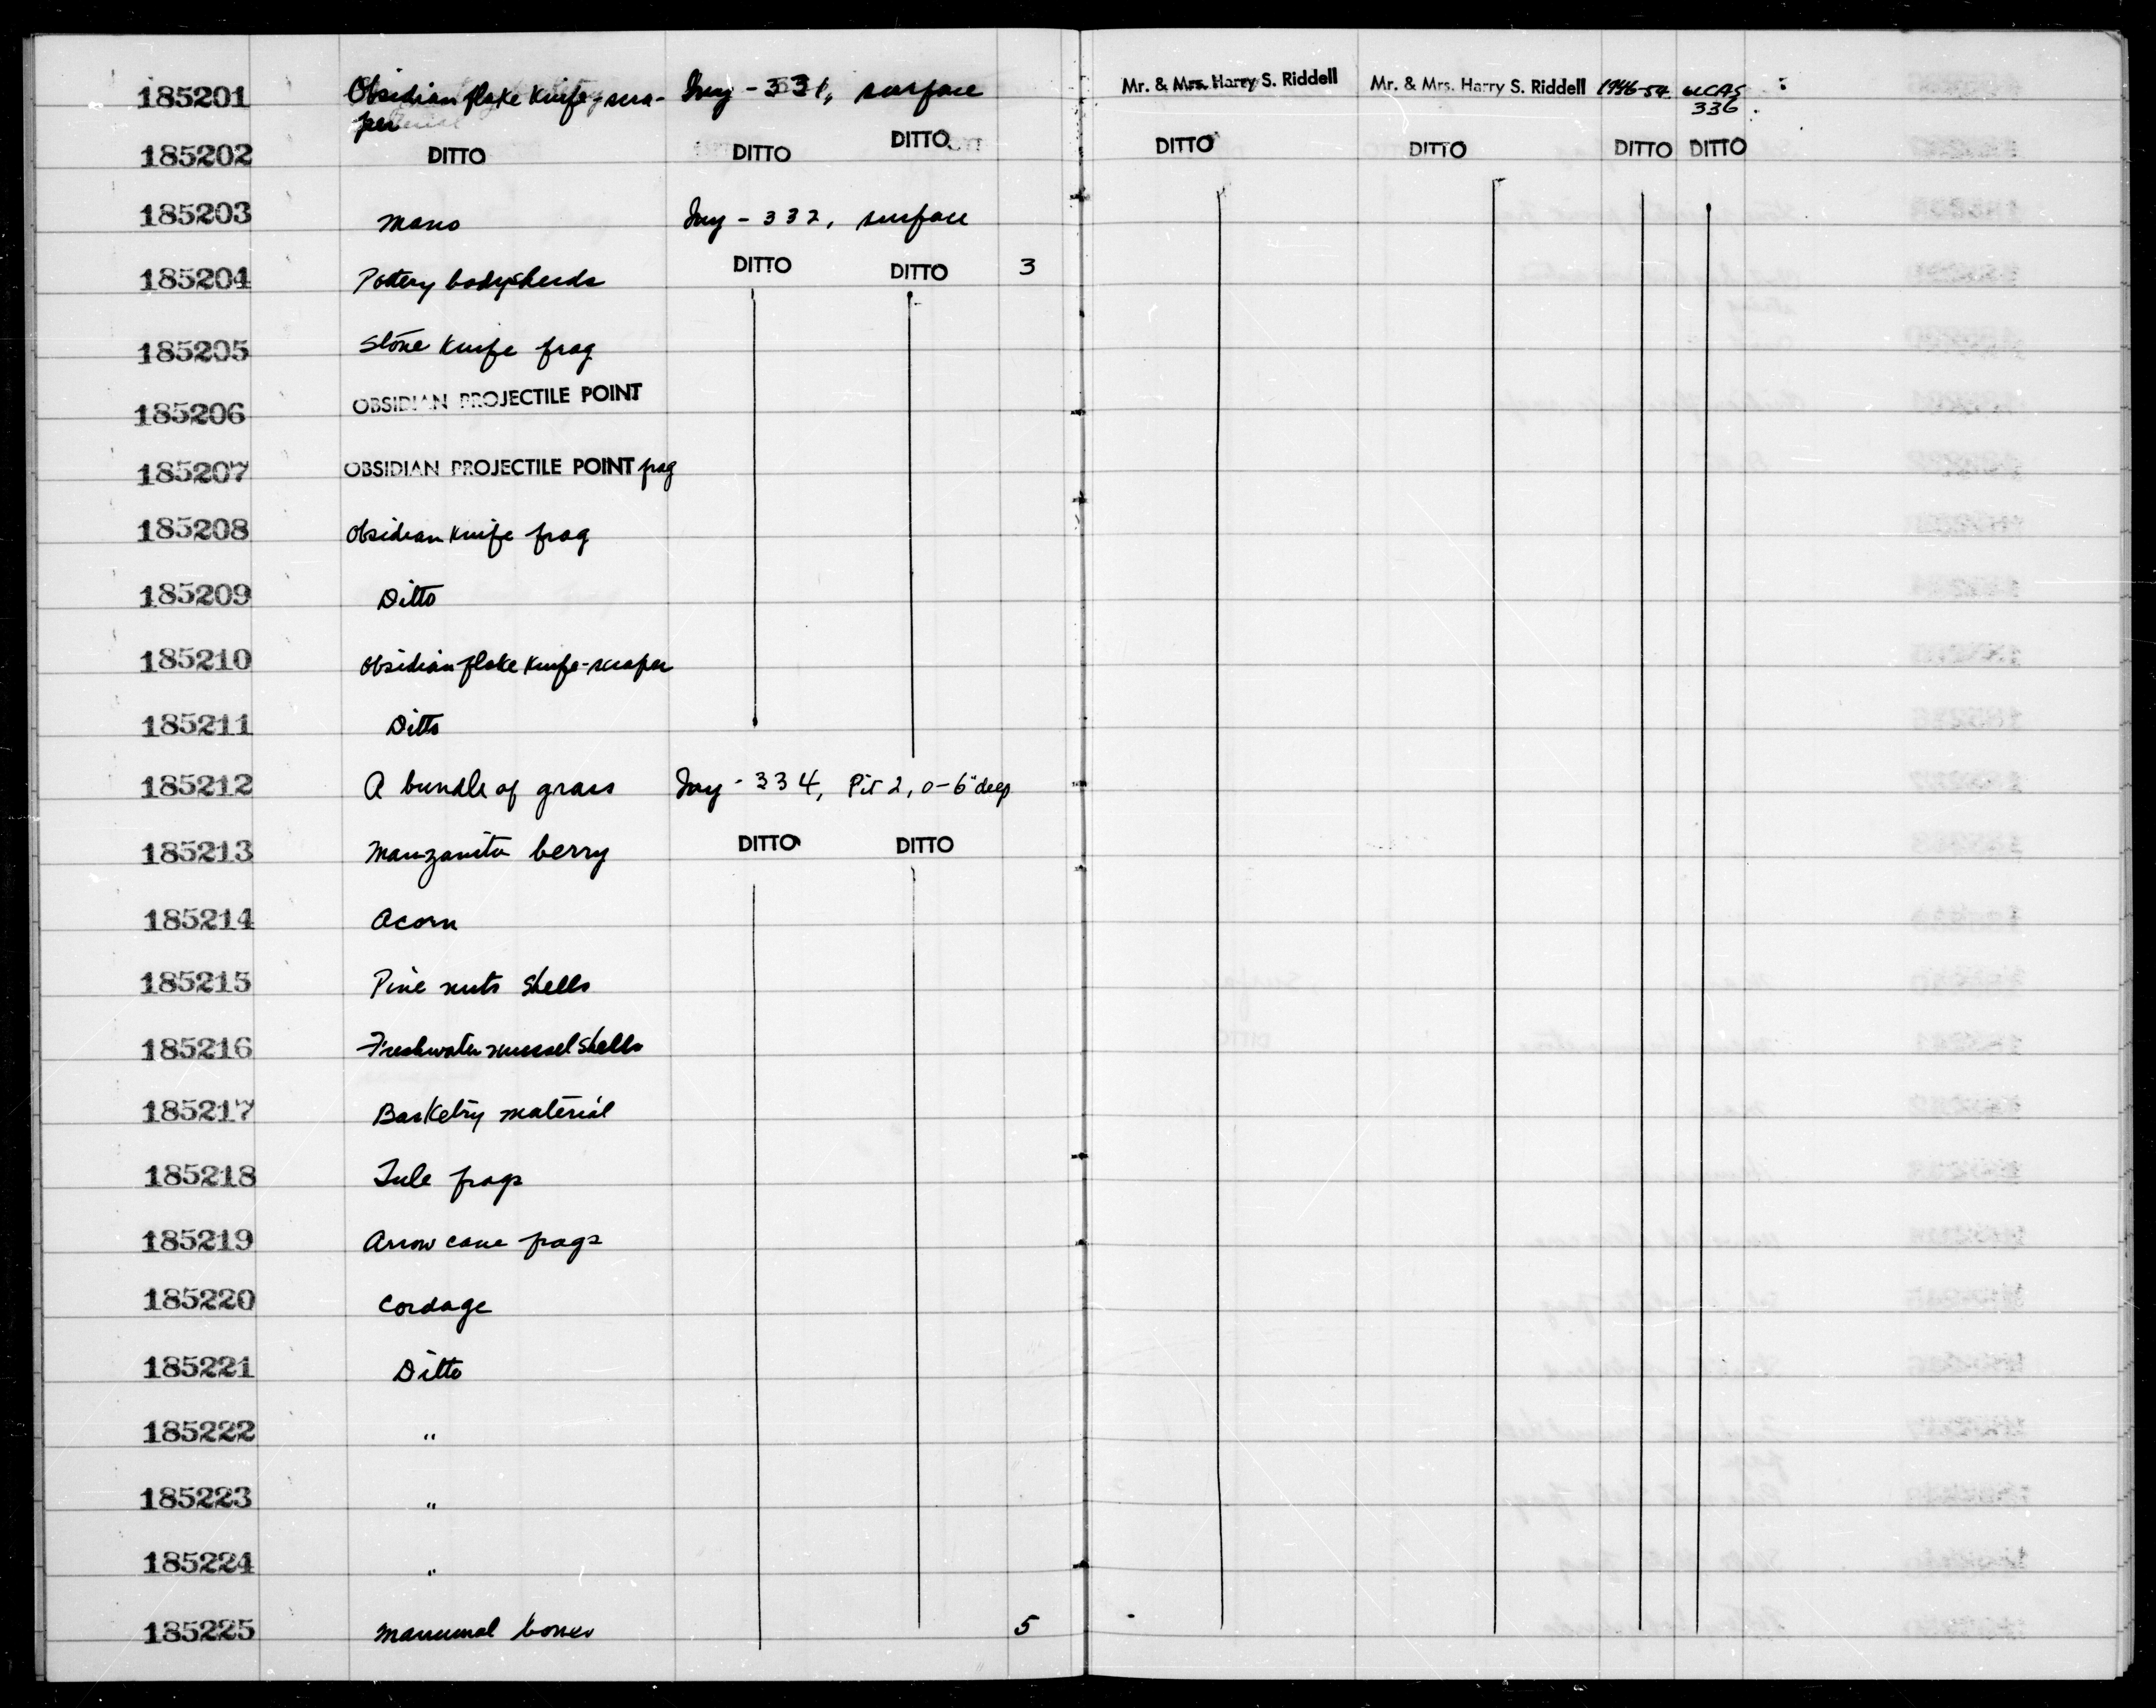 185201 Obsidian flake knife-scra- Iny - 331, surface Mr. & Mrs. Harry S. Riddell Mr. & Mrs. Harry S. Riddell 1946-54 UCAS
per 336
185202 DITTO DITTO DITTO DITTO DITTO DITTO DITTO
185203 Mano Iny - 332, surface
185204 Pottery bodysherds DITTO DITTO 3
185205 Stone knife frag
185206 OBSIDIAN PROJECTILE POINT
185207 OBSIDIAN PROJECTILE POINT frag
185208 Obsidian knife frag
185209 Ditto
185210 Obsidian flake knife-scraper
185211 Ditto
185212 A bundle of grass Iny - 334, Pit 2, 0-6" deep
185213 Manzanita berry DITTO DITTO
185214 Acorn
185215 Pine nuts shells
185216 Freshwater mussel shells
185217 Basketry material
185218 Tule frags
185219 Arrow cane frags
185220 Cordage
185221 Ditto
185222 "
185223 "
185224 "
185225 Mammal bones 5